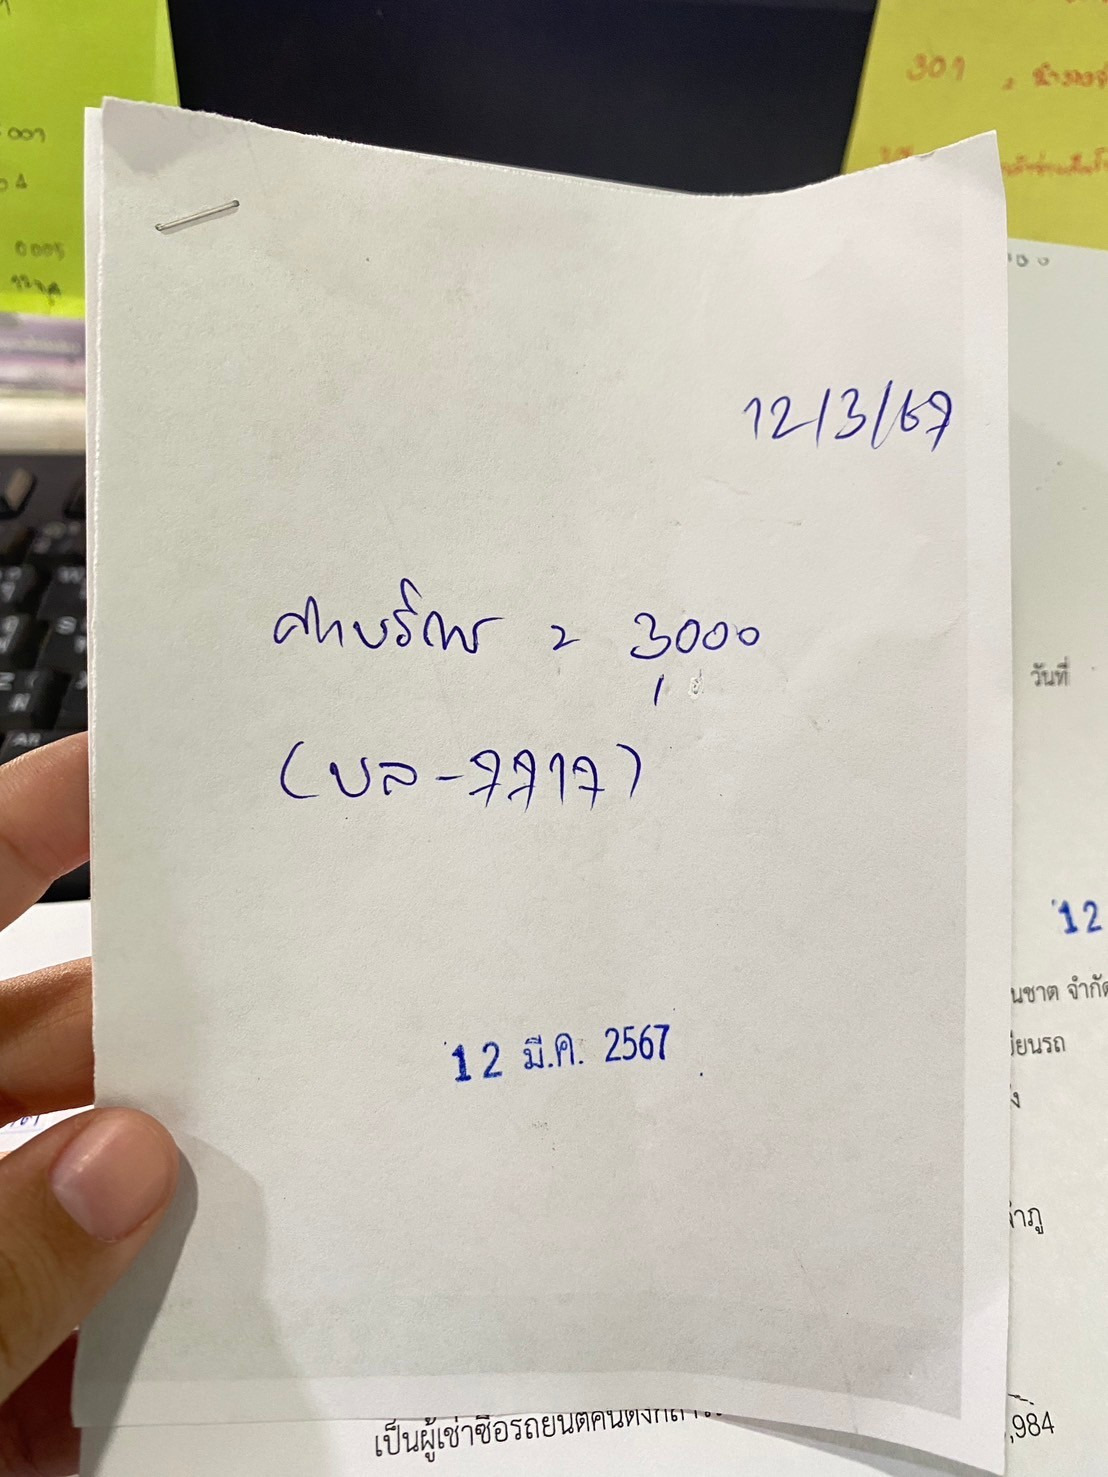 001
0005
301
12/3/67
ค่าบริการ = 3000
(บล-7717)
วันที่
12
นชาต จำกัด
12 มี.ค. 2567
ยนรถ
,984
เป็นผู้เช่าซื้อรถยนต์คันดังกล่าว